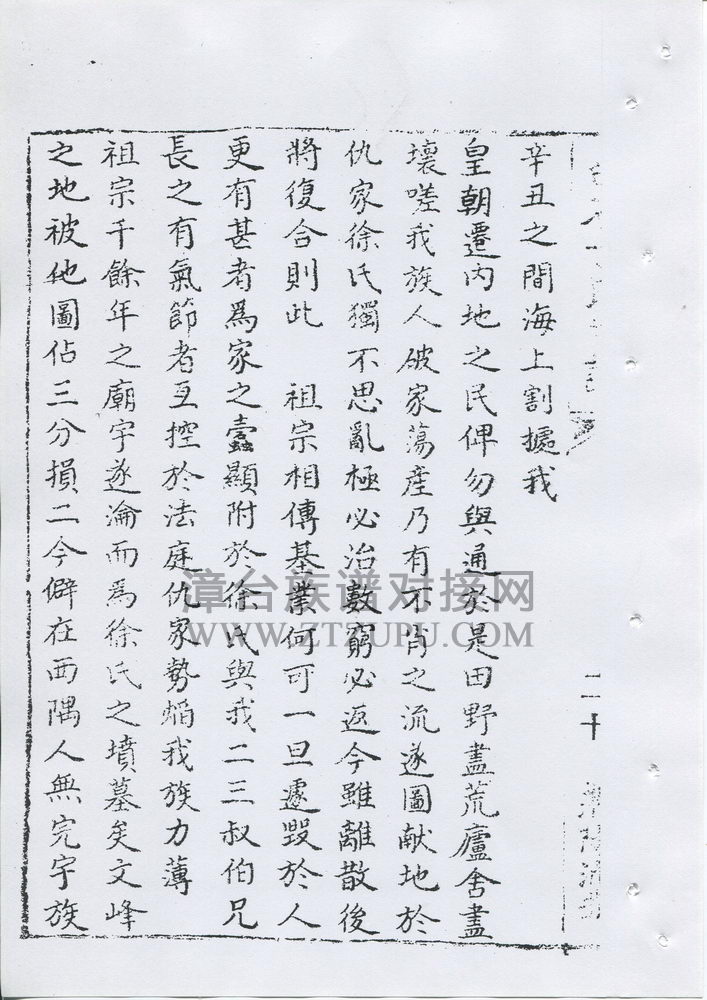 辛丑之間海上割據我
皇朝遷內地之民俾勿與通於是田野盡荒廬舍盡
壞嗟我族人破家蕩產乃有不肖之流遂圖献地於
仇家徐氏獨不思亂極必治數窮必返今雖離散後
將復合則此 祖宗相傳基業何可一旦遽毀於人
更有甚者為家之蠹顯附於徐氏與我二三叔伯兄
長之有氣節者互控於法庭仇家勢焰我族力薄
祖宗千餘年之廟宇遂淪而為徐氏之墳墓矣文峰
之地被他圖佔三分損二今僻在西隅人無完宇族
二十
漳台族谱对接网
WWW.ZTZUPU.COM